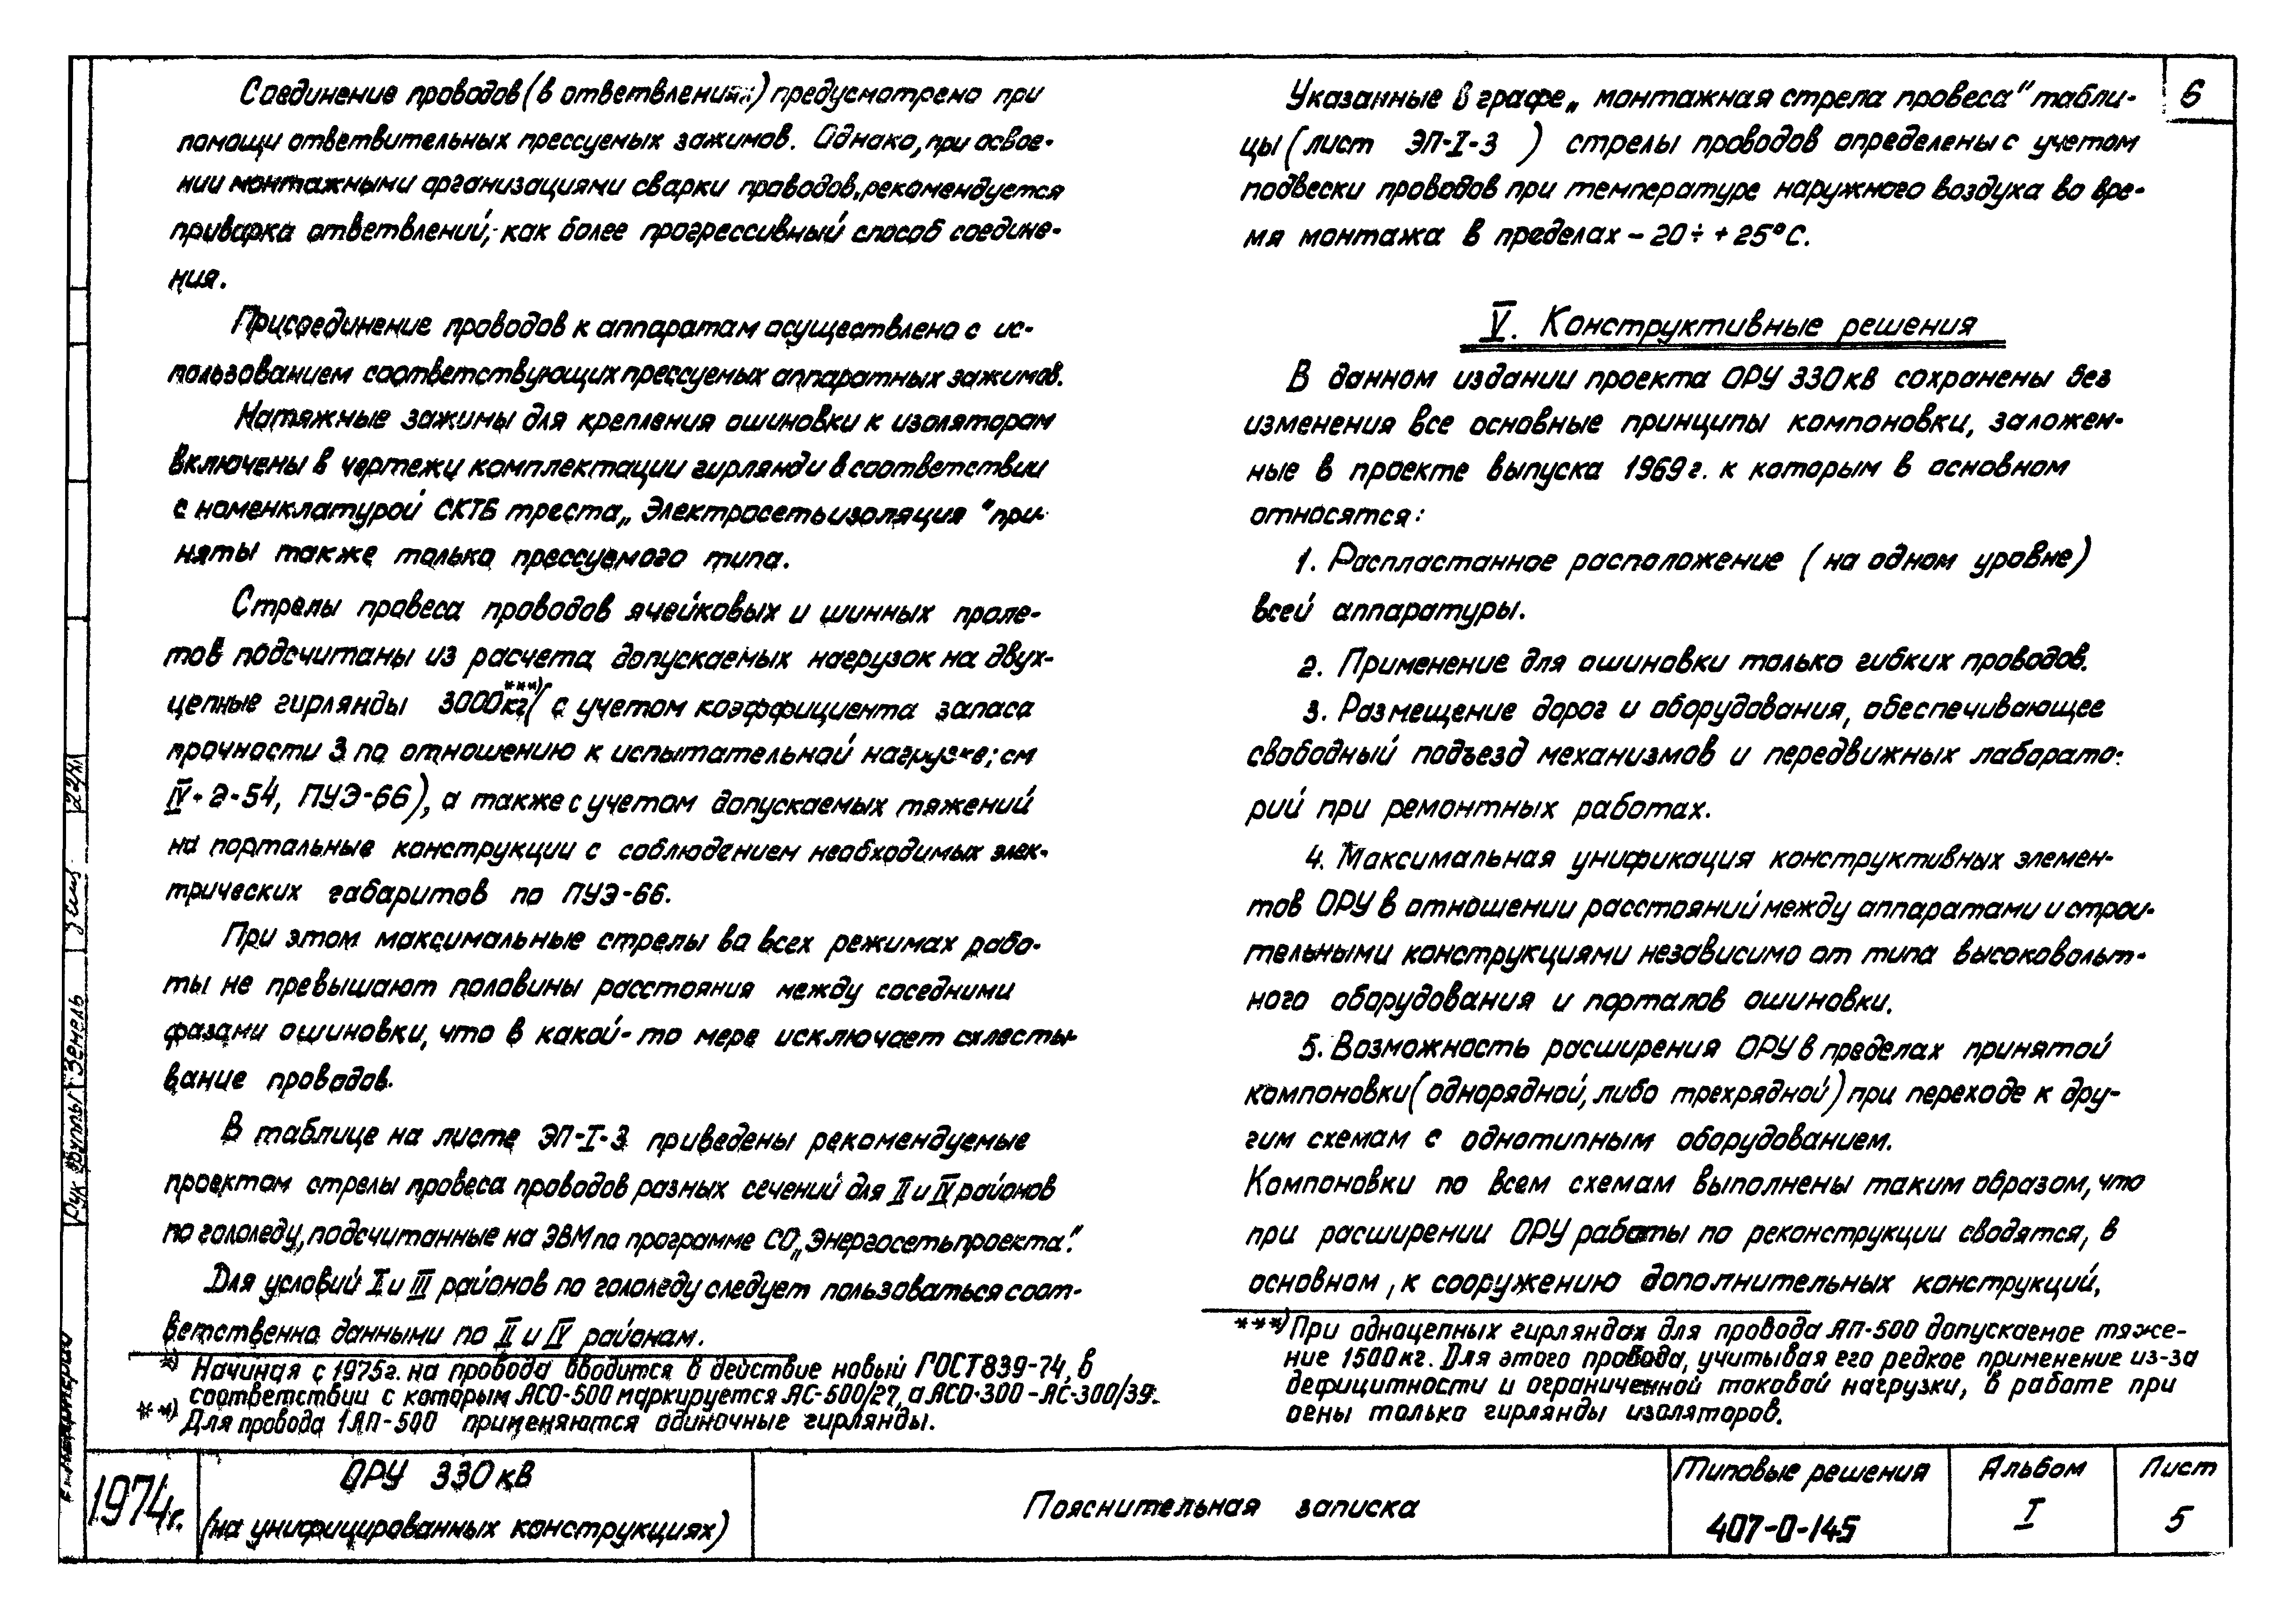 6
Соединение проводов (в ответвлениях) предусмотрено при
помощи ответвительных прессуемых зажимов. Однако, при освое-
нии монтажными организациями сварки проводов, рекомендуется
приварка ответвлений, как более прогрессивный способ соедине-
ния.
Присоединение проводов к аппаратам осуществлено с ис-
пользованием соответствующих прессуемых аппаратных зажимов.
Натяжные зажимы для крепления ошиновки к изоляторам
включены в чертежи комплектации гирлянд и в соответствии
с номенклатурой СКТБ треста „Электросетьизоляция" при-
няты также только прессуемого типа.
Стрелы провеса проводов ячейковых и шинных проле-
тов подсчитаны из расчета допускаемых нагрузок на двух-
цепные гирлянды 3000кг***) (с учетом коэффициента запаса
прочности 3 по отношению к испытательной нагрузке; см
IV-2-54, ПУЭ-66), а также с учетом допускаемых тяжений
на портальные конструкции с соблюдением необходимых элек-
трических габаритов по ПУЭ-66.
При этом максимальные стрелы во всех режимах рабо-
ты не превышают половины расстояния между соседними
фазами ошиновки, что в какой-то мере исключает схлесты-
вание проводов.
В таблице на листе ЭП-I-3 приведены рекомендуемые
проектом стрелы провеса проводов разных сечений для II и IV районов
по гололеду, подсчитанные на ЭВМ по программе СО „Энергосетьпроекта".
Для условий I и III районов по гололеду следует пользоваться соот-
ветственно данными по II и IV районам.
*) Начиная с 1975г. на провода вводится в действие новый ГОСТ 839-74, в
соответствии с которым АСО-500 маркируется АС-500/27, а АСО-300 - АС-300/39.
**) Для провода 1АП-500 применяются одиночные гирлянды.
Указанные в графе „монтажная стрела провеса" табли-
цы (лист ЭП-I-3 ) стрелы проводов определены с учетом
подвески проводов при температуре наружного воздуха во вре-
мя монтажа в пределах - 20 ÷ + 25°С.
V. Конструктивные решения
В данном издании проекта ОРУ 330кв сохранены без
изменения все основные принципы компоновки, заложен-
ные в проекте выпуска 1969г. к которым в основном
относятся:
1. Распластанное расположение (на одном уровне)
всей аппаратуры.
2. Применение для ошиновки только гибких проводов.
3. Размещение дорог и оборудования, обеспечивающее
свободный подъезд механизмов и передвижных лаборато-
рий при ремонтных работах.
4. Максимальная унификация конструктивных элемен-
тов ОРУ в отношении расстояний между аппаратами и строи-
тельными конструкциями независимо от типа высоковольт-
ного оборудования и порталов ошиновки.
5. Возможность расширения ОРУ в пределах принятой
компоновки (однорядной, либо трехрядной) при переходе к дру-
гим схемам с однотипным оборудованием.
Компоновки по всем схемам выполнены таким образом, что
при расширении ОРУ работы по реконструкции сводятся, в
основном, к сооружению дополнительных конструкций,
***) При одноцепных гирляндах для провода АП-500 допускаемое тяже-
ние 1500кг. Для этого провода, учитывая его редкое применение из-за
дефицитности и ограниченной токовой нагрузки, в работе при
дены только гирлянды изоляторов.
Рук группы Земель
1974г.
ОРУ 330кв
(на унифицированных конструкциях)
Пояснительная записка
Типовые решения
407-0-145
Альбом
I
Лист
5